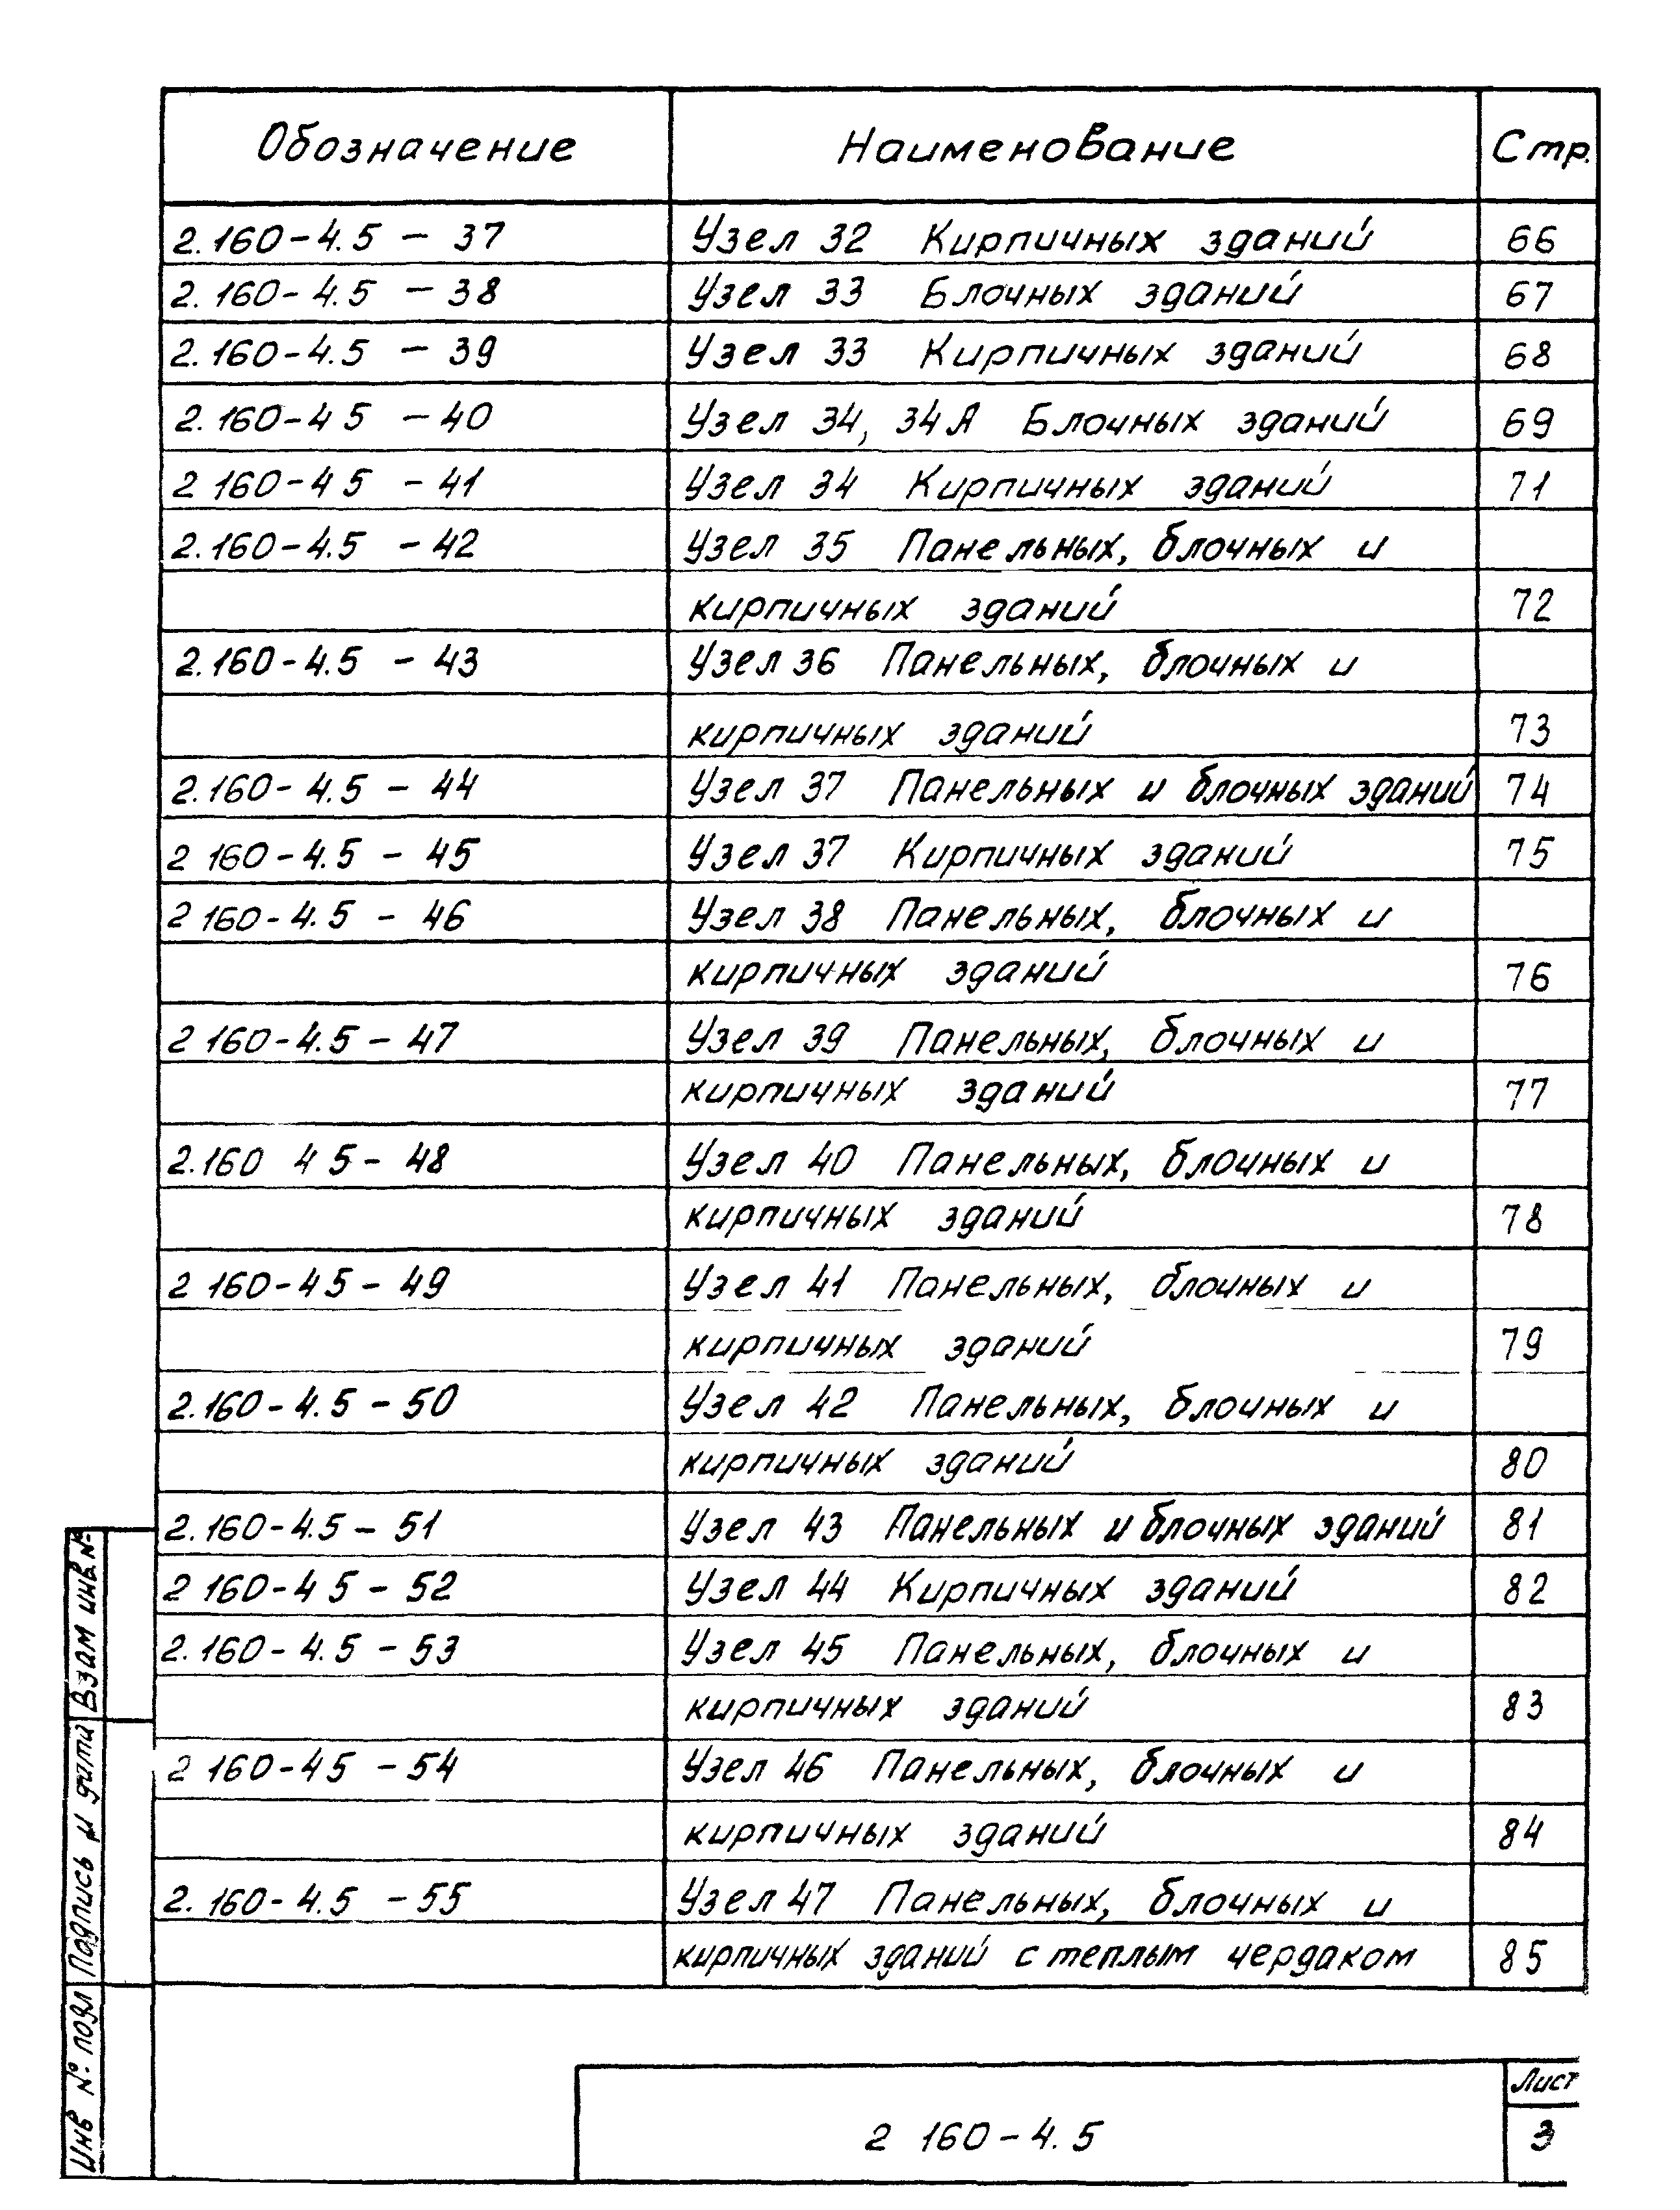 Обозначение Наименование Стр.
2.160-4.5 - 37 Узел 32 Кирпичных зданий 66
2.160-4.5 - 38 Узел 33 Блочных зданий 67
2.160-4.5 - 39 Узел 33 Кирпичных зданий 68
2.160-4 5 - 40 Узел 34, 34А Блочных зданий 69
2 160-4 5 - 41 Узел 34 Кирпичных зданий 71
2.160-4.5 - 42 Узел 35 Панельных, блочных и
кирпичных зданий 72
2.160-4.5 - 43 Узел 36 Панельных, блочных и
кирпичных зданий 73
2.160-4.5 - 44 Узел 37 Панельных и блочных зданий 74
2 160-4.5 - 45 Узел 37 Кирпичных зданий 75
2 160-4.5 - 46 Узел 38 Панельных, блочных и
кирпичных зданий 76
2 160-4.5 - 47 Узел 39 Панельных, блочных и
кирпичных зданий 77
2.160 4 5 - 48 Узел 40 Панельных, блочных и
кирпичных зданий 78
2 160-4 5 - 49 Узел 41 Панельных, блочных и
кирпичных зданий 79
2.160-4.5 - 50 Узел 42 Панельных, блочных и
кирпичных зданий 80
2.160-4.5 - 51 Узел 43 Панельных и блочных зданий 81
2 160-4 5 - 52 Узел 44 Кирпичных зданий 82
2.160-4.5 - 53 Узел 45 Панельных, блочных и
кирпичных зданий 83
2 160-4 5 - 54 Узел 46 Панельных, блочных и
кирпичных зданий 84
2.160-4.5 - 55 Узел 47 Панельных, блочных и
кирпичных зданий с теплым чердаком 85
Взам инв.№
Подпись и дата
Инв № подл
2 160-4.5
Лист
3